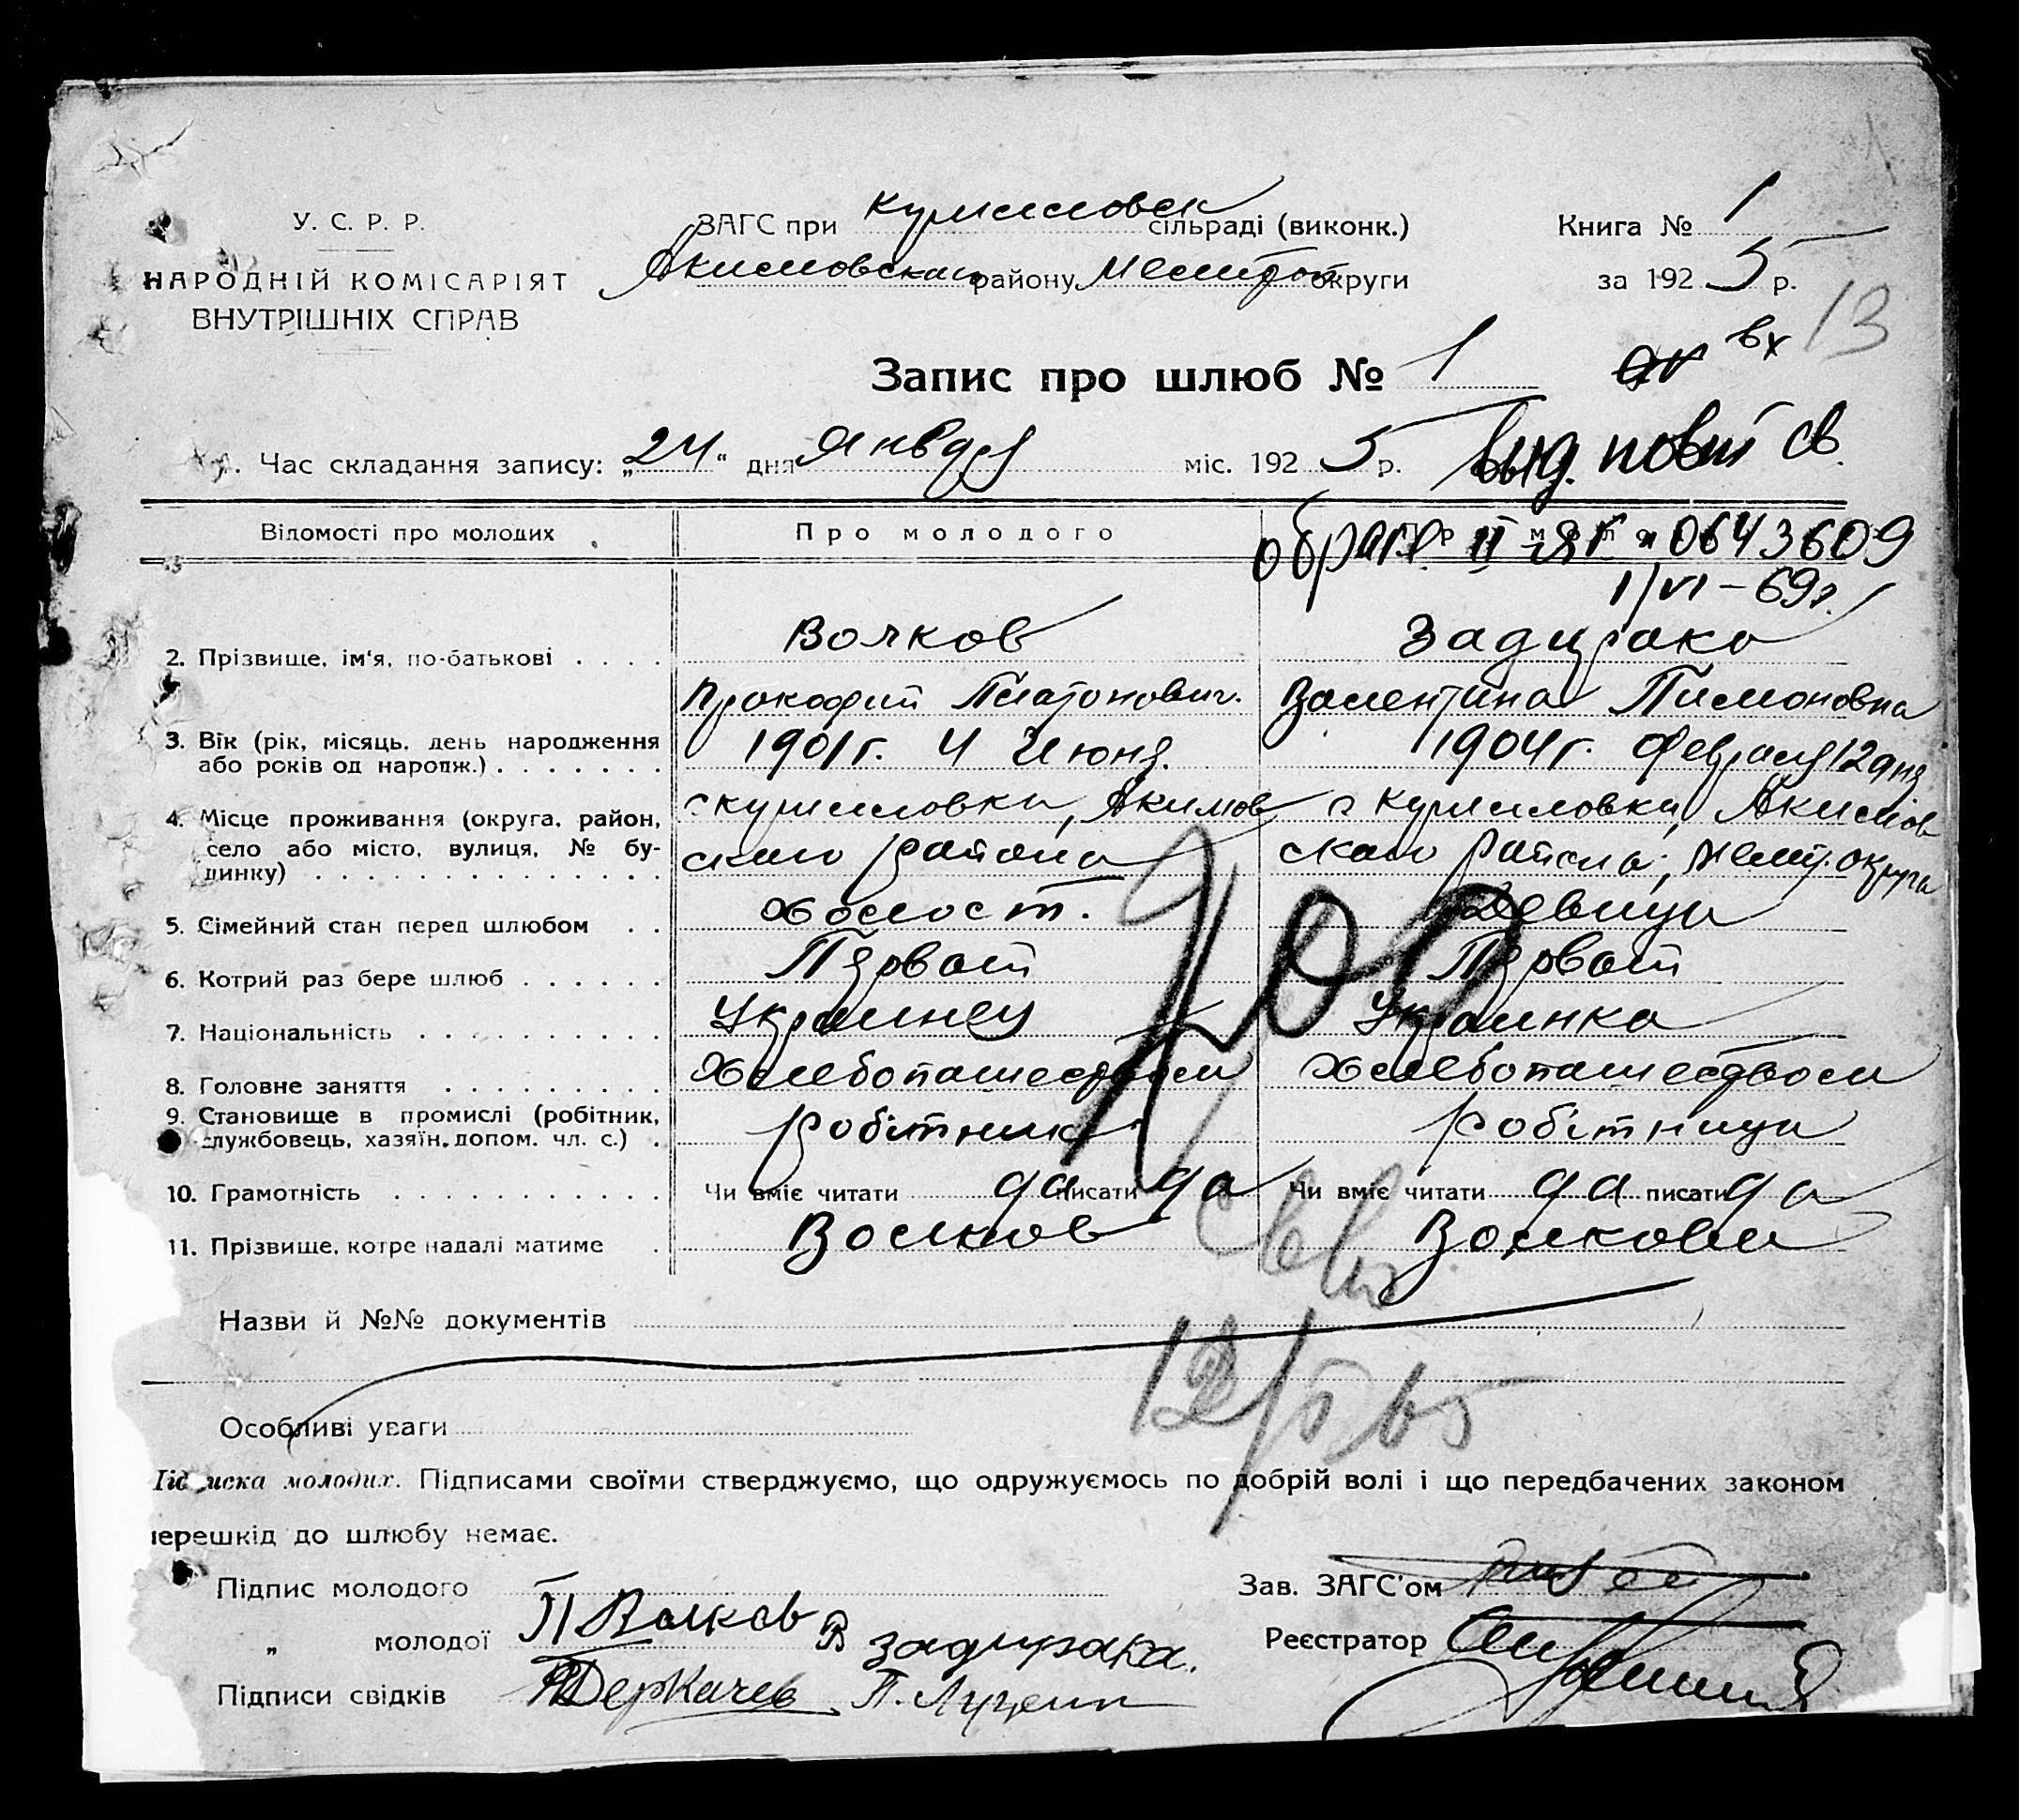 У. С. Р. Р.
НАРОДНІЙ КОМІСАРІЯТ
ВНУТРІШНІХ СПРАВ
ЗАГС при Кирилловск сільраді (виконк.)
Акимовскаго району Мелитоп округи
Книга № 1
за 1925 р.
13
вх
Запис про шлюб № 1
Час складання запису: „24“ дня Января міс. 1925 р.
выд. повт св.
Відомості про молодих
Про молодого
0643609
1/VI – 69г.
2. Прізвище, ім'я, по-батькові . . . .
Волков
Задирако
Прокофий Платонович.
Валентина Пимоновна
3. Вік (рік, місяць, день народження або років од народж.) . . . . . . .
1901г. 4 Июня.
1904г. Февраля 12 дня
4. Місце проживання (округа, район, село або місто, вулиця, № будинку) . . . . . . . . . . . . . .
с Кирилловки, Акимов
с Кирилловки, Акимов
скаго района
скаго района, Мелит. округа
5. Сімейний стан перед шлюбом . .
Холост.
Девица
6. Котрий раз бере шлюб . . . . . .
Первый
Первый
7. Національність . . . . . . . . . .
Украинец
Украинка
8. Головне заняття . . . . . . . . .
Хлебопашеством
Хлебопашеством
9. Становище в промислі (робітник, службовець, хазяїн, допом. чл. с.) .
робітник
робітниця
10. Грамотність . . . . . . . . . . . .
Чи вміє читати да писати да
Чи вміє читати да писати да
11. Прізвище, котре надалі матиме .
Волков
Волкова
Назви й №№ документів
12/5 65
Особливі уваги
Підписка молодих. Підписами своїми стверджуємо, що одружуємось по добрій волі і що передбачених законом
перешкід до шлюбу немає.
Підпис молодого
П Волков
„ молодої
В Задирака.
Підписи свідків
Деркачев
Зав. ЗАГС'ом
Реєстратор